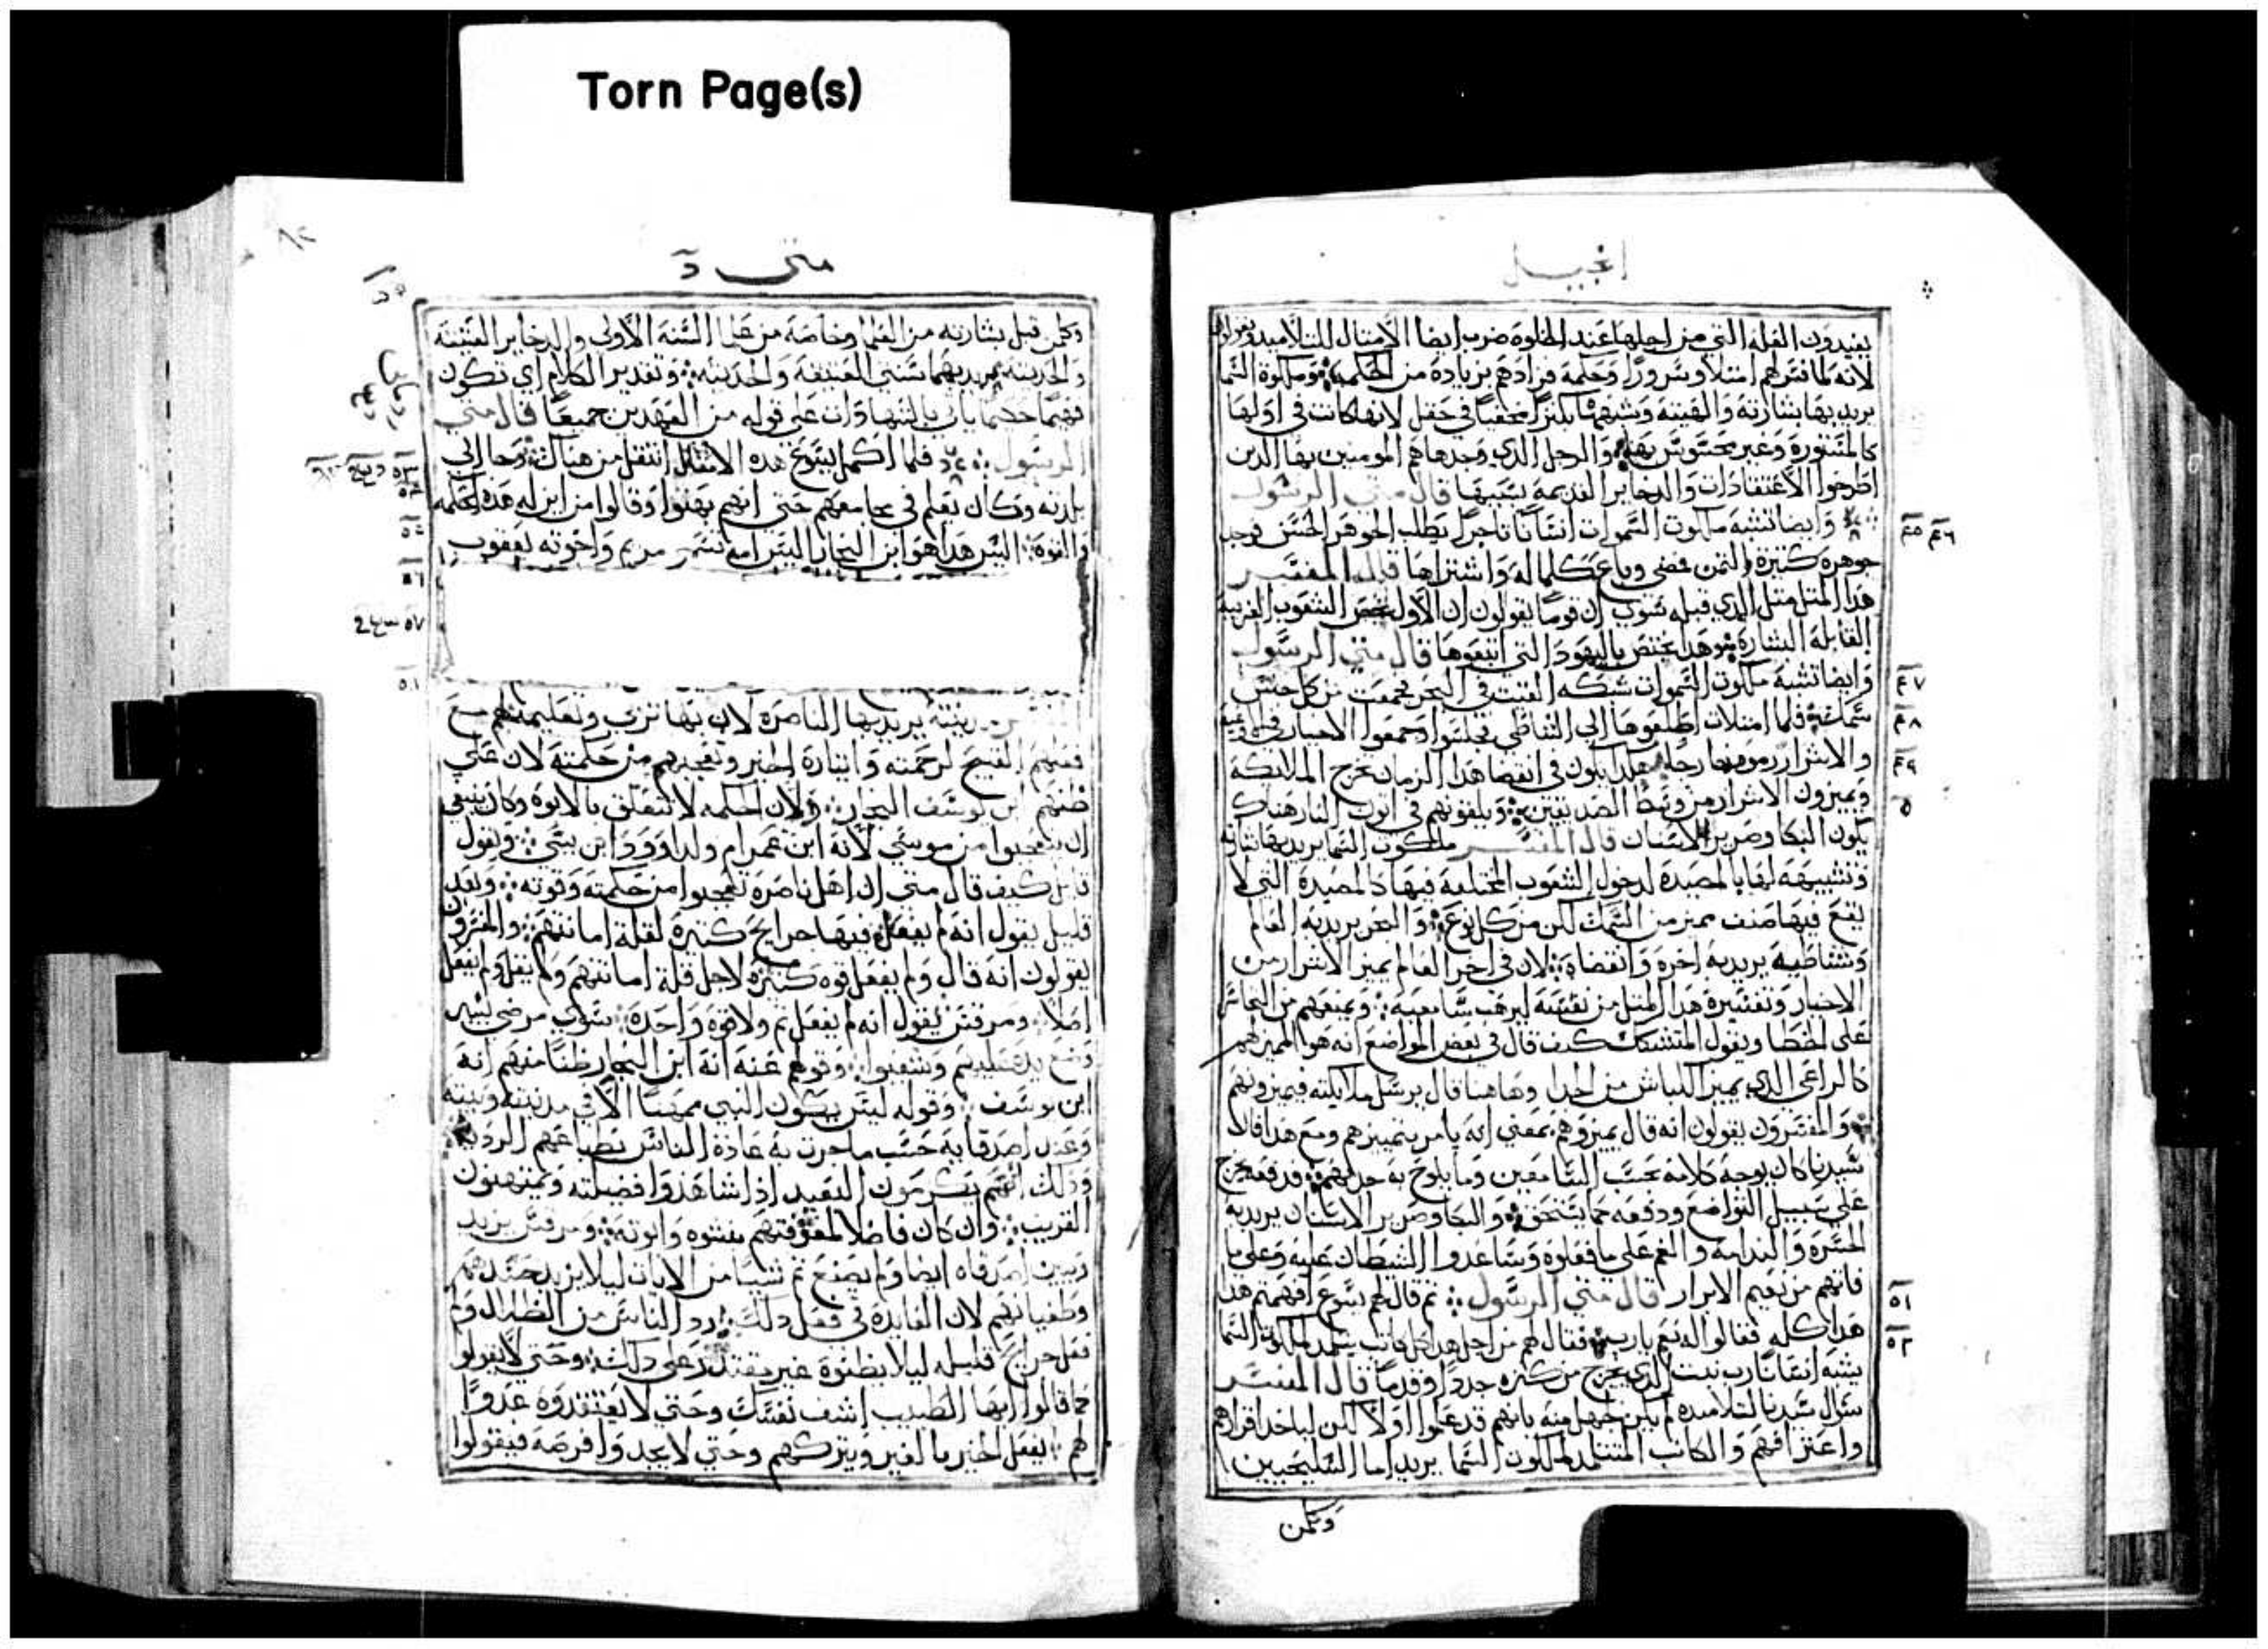 Torn Page(s)
إنجيل
يفيدون العله التي من اجلها عند الخلوة ضرب ايضا الامثال للتلاميد
لانه لما فسرلهم امتلاو سرورًا وحكمة فزادهم بزيادة من الحكمه وملكوة السما
يريد بها بشارته والهيته وشبههما بكنزًا مخفيًا في حقل لانها كانت في اولها
كالمستورة وغير محسوس بها والرجل الذي وجدها هم المومنين بها الدين
اطرحوا الاعتقادات والدخاير القديمة بسببها قال متي الرسول
وايضا تشبه ملكوت السموات انسانًا تاجرًا يطلب الجوهر الحسن فوجد
جوهره كثيرة الثمن فمضى وباع كلما له واشتراها قال المفسر
هدا المثل مثل الدي قبله سوي ان قومًا يقولون ان الاول يخص الشعوب الغريبة
القابلة البشارة وهدا يختص باليهود التي اتبعوها قال متي الرسول
وايضا تشبه ملكوت السموات شبكه القيت في البحر فجمعت من كل جنس
سمك فلما امتلات اطلعوها الي الشاطي فجلسوا وجمعوا الاخيار
والاشرار رموهم خارجا هكدا يكون في انقضا هدا الزمان تخرج الملايكة
ويميزون الاشرار من وسط الصديقين ويلقونهم في اتون النار هناك
يكون البكا وصرير الاسنان قال المفسر ملكوت السما يريد بها بشارته
وتشبيهه لها بالمصيدة لدخول الشعوب المختلفه فيها كالمصيدة التي لا
يقع فيها صنف مميز من السمك لكن من كل نوع والبحر يريد به العالم
وشاطيه يريد به اخره وانقضاه لان في اخر العالم يميز الاشرار من
الاخيار وتفسيره هدا المثل من نفسه ليرهب سامعيه ويمنعهم من التجاسر
على الخطا ويقول المتشكك كيف قال في بعض المواضع انه هو المميز لهم
كالراعي الدي يميز الكباش من الجدا وهاهنا قال يرسل ملايكته فيميزونهم
والمفسرون يقولون انه قال يميزوهم بمعني انه يامر بتمييزهم ومع هدا فان
سيدنا كان يوجه كلامه بحسب السامعين وما يلوح به حد لهم
على سبيل التواضع ودفعه كما يستحق والبكا وصرير الاسنان يريد به
الحسرة والندامة والغم على ما فعلوه وساعدوا الشيطان عليه وعلى ما
فاتهم من نعيم الابرار قال متي الرسول ثم قال لهم يسوع افهمتم هدا
هدا كله فقالوا له نعم يارب فقال لهم من اجل هدا كل كاتب يتلمد لملكوة السما
يشبه انسانًا رب بيت الدي يخرج من كنزه جددًا وقدمًا قال المفسر
سؤال سيدنا لتلاميده لم يكن جهل منه بانهم قد علموا اولا لكن لياخد اقرارهم
واعترافهم والكاتب المتتلمد لملكوت السما يريد اما السليحيين
وكمن
٤٥ ٤٦
٤٧
٤٨
٤٩
٥٠
٥١
٥٢
متى
وكمن قبل بشارته من العلما وخاصة من علما السنة الاولى والدخاير العتيقة
والحديثة يريد بهما سنتي العتيقة والحديثه وتقدير الكلام اي تكون
فهيمًا حكيمًا ياتي بالشهادات على قوله من العهدين جميعًا قال متي
الرسول فلما اكمل يسوع هده الامثال انتقل من هناك وجا الي
بلدته وكان يعلم في مجامعهم حتي انهم بهتوا وقالوا من اين له هده الحكمه
والقوه اليس هدا هو ابن النجار اليس امه تسمى مريم واخوته يعقوب
مدينته يريد بها الناصرة لان بها تربى وتعليمهم مع
فعلهم القبيح لرحمته واشاره الخير وتعجبهم من حكمته لان علي
ظنهم ابن يوسف النجار ولان الحكمه لا تتعلق بالابوه وكان ينبغي
ان يتعجبوا من موسي لانه ابن عمرام ولداوود ابن يسي ويقول
قايل كيف قال متى ان اهل ناصرة تعجبوا من حكمته وقوته وبعد
قليل يقول انه لم يفعل فيها جرايح كثيرة لقلة امانتهم والمفسرون
يقولون انه قال ولم يفعل قوه كثيرة لاجل قلة امانتهم ولم يقل ولم يفعل
اصلا ومرقس يقول انه لم يفعل ثم ولا قوة واحدة سوي مرضى يسير
وضع يده عليهم وشفيوا وقولهم عنه انه ابن النجار ظنًا منهم انه
ابن يوسف وقوله ليس يكون النبي مهينًا الا في مدينته وبيته
وعند اصدقايه حسب ماجرت به عادة الناس بطباعهم الرديه
ودلك انهم يكرمون البعيد ادا شاهدوا فضيلته ويمتهنون
القريب وان كان فاضلا لمعرفتهم بنشوه وابوته ومرقس يزيد
وبين اصدقاه ايضا ولم يصنع ثم شيًا من الايات ليلا يزيد حسدهم
وطغيانهم لان الفايدة في فعل دلك رد الناس من الضلال ولم
فعل جرايح قليله ليلا يظنوة غير مقتدر على دلك وحتي لا يقولو
كما قالوا ايها الطبيب اشف نفسك وحتي لا يعتقدوه عدوًا
لهم يفعل الخير بالغير ويتركهم وحتي لا يجدوا فرصه فيقولوا
٥٣
٥٤
٥٥
٥٦
٥٧